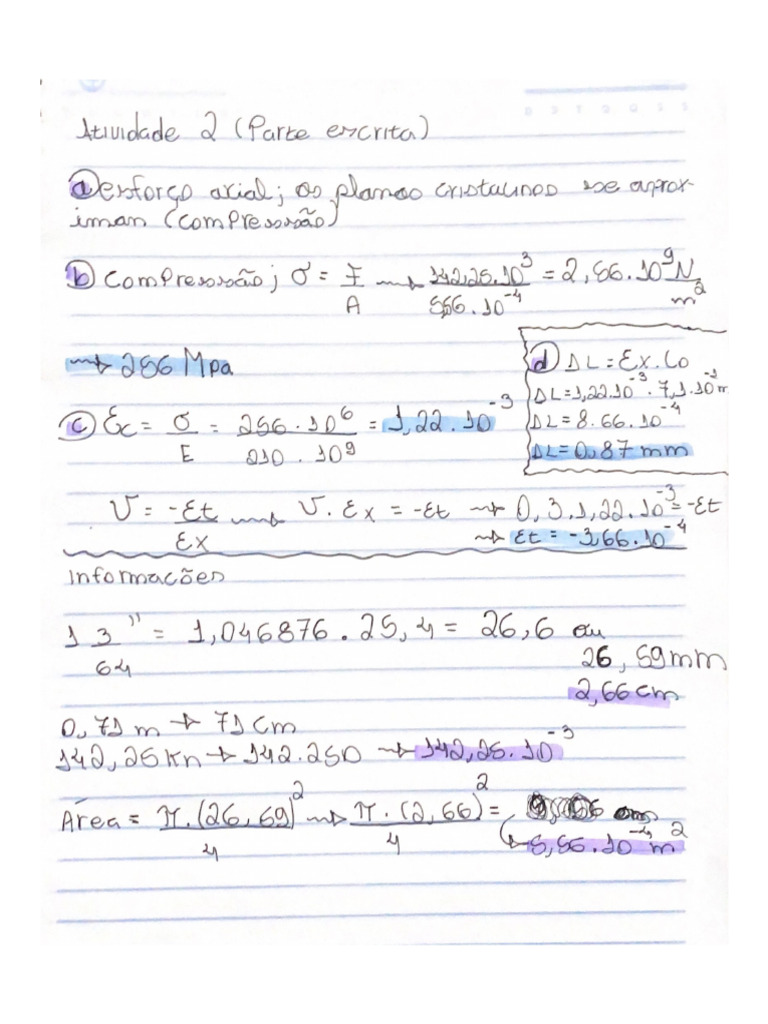 Atividade 2 (Parte escrita)
a) esforço axial; os planos cristalinos se aprox-
iman (compressão)
b) Compressão; σ = F/A → 142,25.10³/5,56.10⁻⁴ = 2,56.10⁹ N/m²
→ 256 Mpa
d) ΔL = Ex.Lo
ΔL = 1,22.10⁻³ . 7,1.10⁻¹ m
ΔL = 8.66.10⁻⁴
ΔL = 0,87 mm
c) Ec = σ/E = 256.10⁶/210.10⁹ = 1,22.10⁻³
V = -Et/Ex → V.Ex = -Et → 0,3.1,22.10⁻³ = -Et
→ Et = -3,66.10⁻⁴
Informações
1 3/64" = 1,046876 . 25,4 = 26,6 ou
26,59mm
2,66cm
0,71m → 71cm
142,25Kn → 142.250 → 142,25.10⁻³
Área = π.(26,59)²/4 → π.(2,66)²/4 =
↳ 5,56.10⁻⁴m²